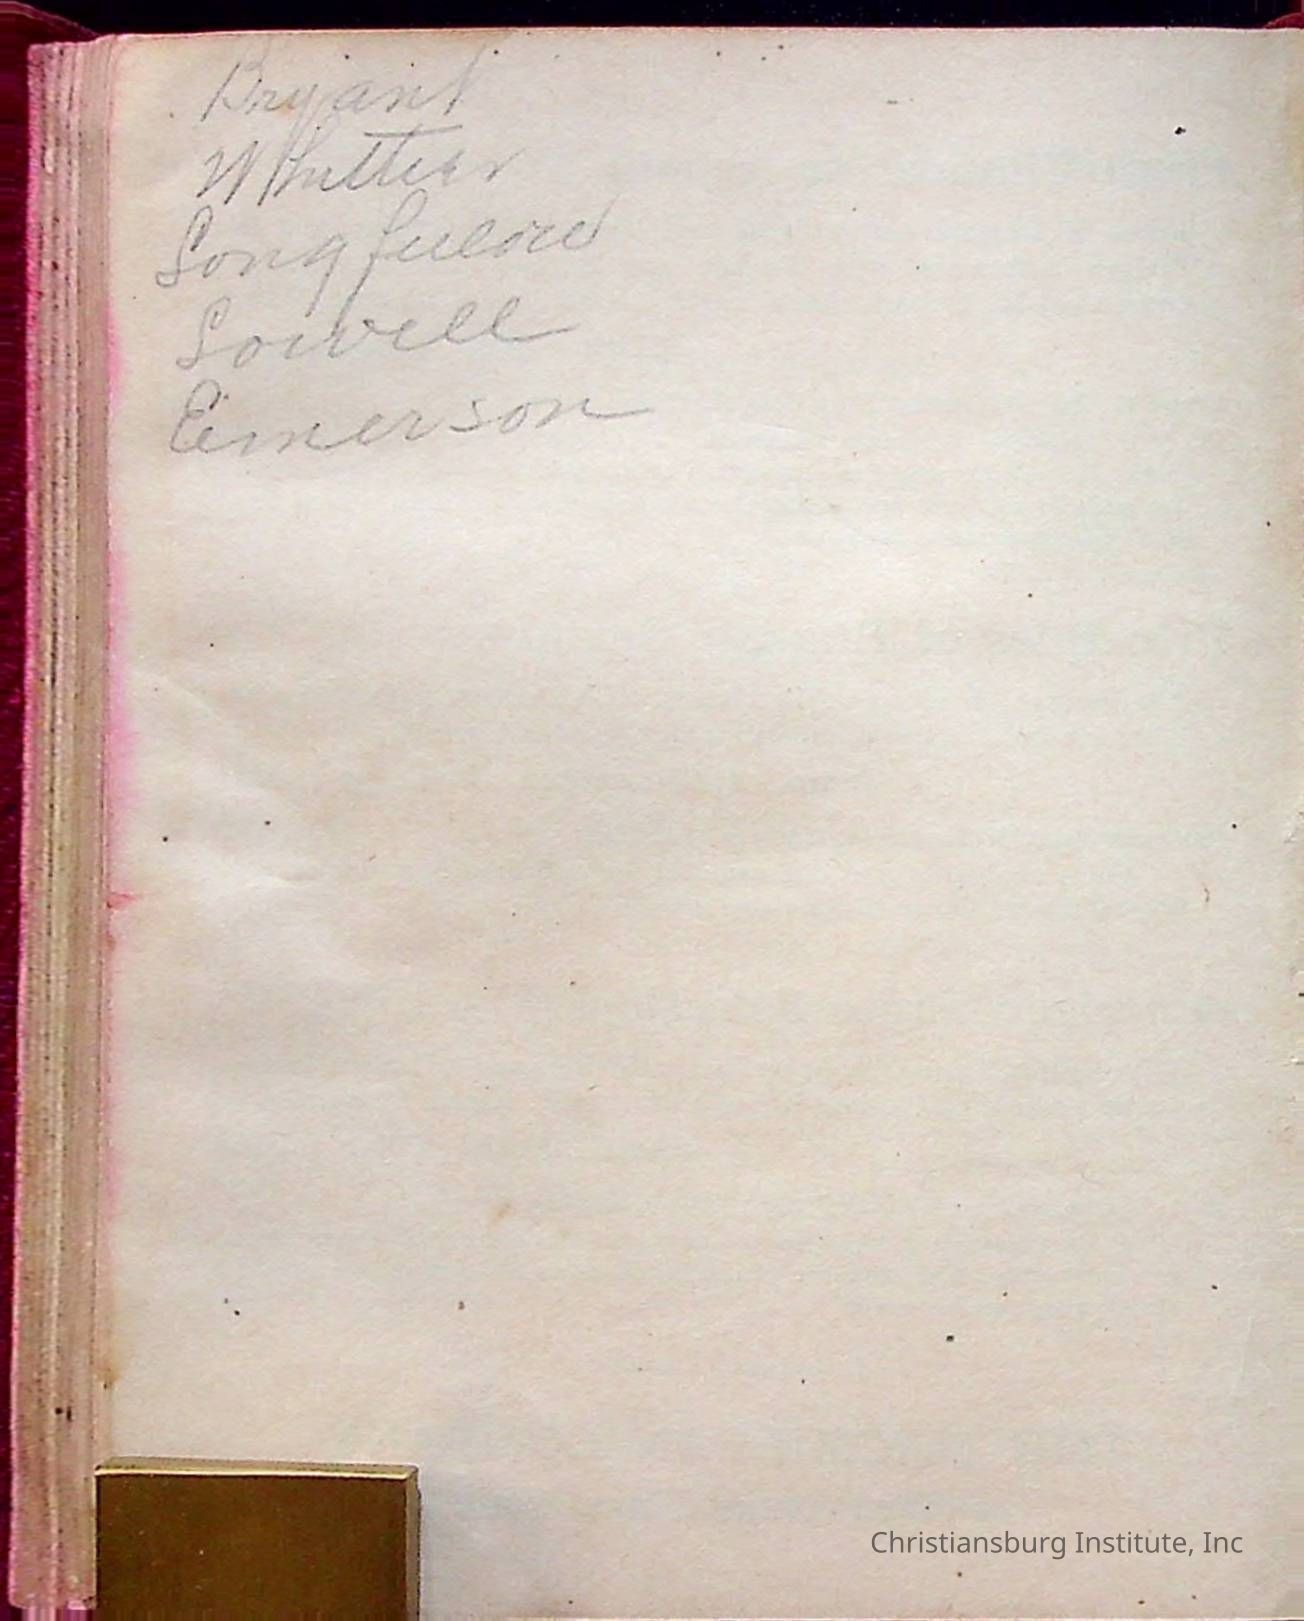 Bryant
Whittier
Longfellow
Lowell
Emerson
Christiansburg Institute, Inc